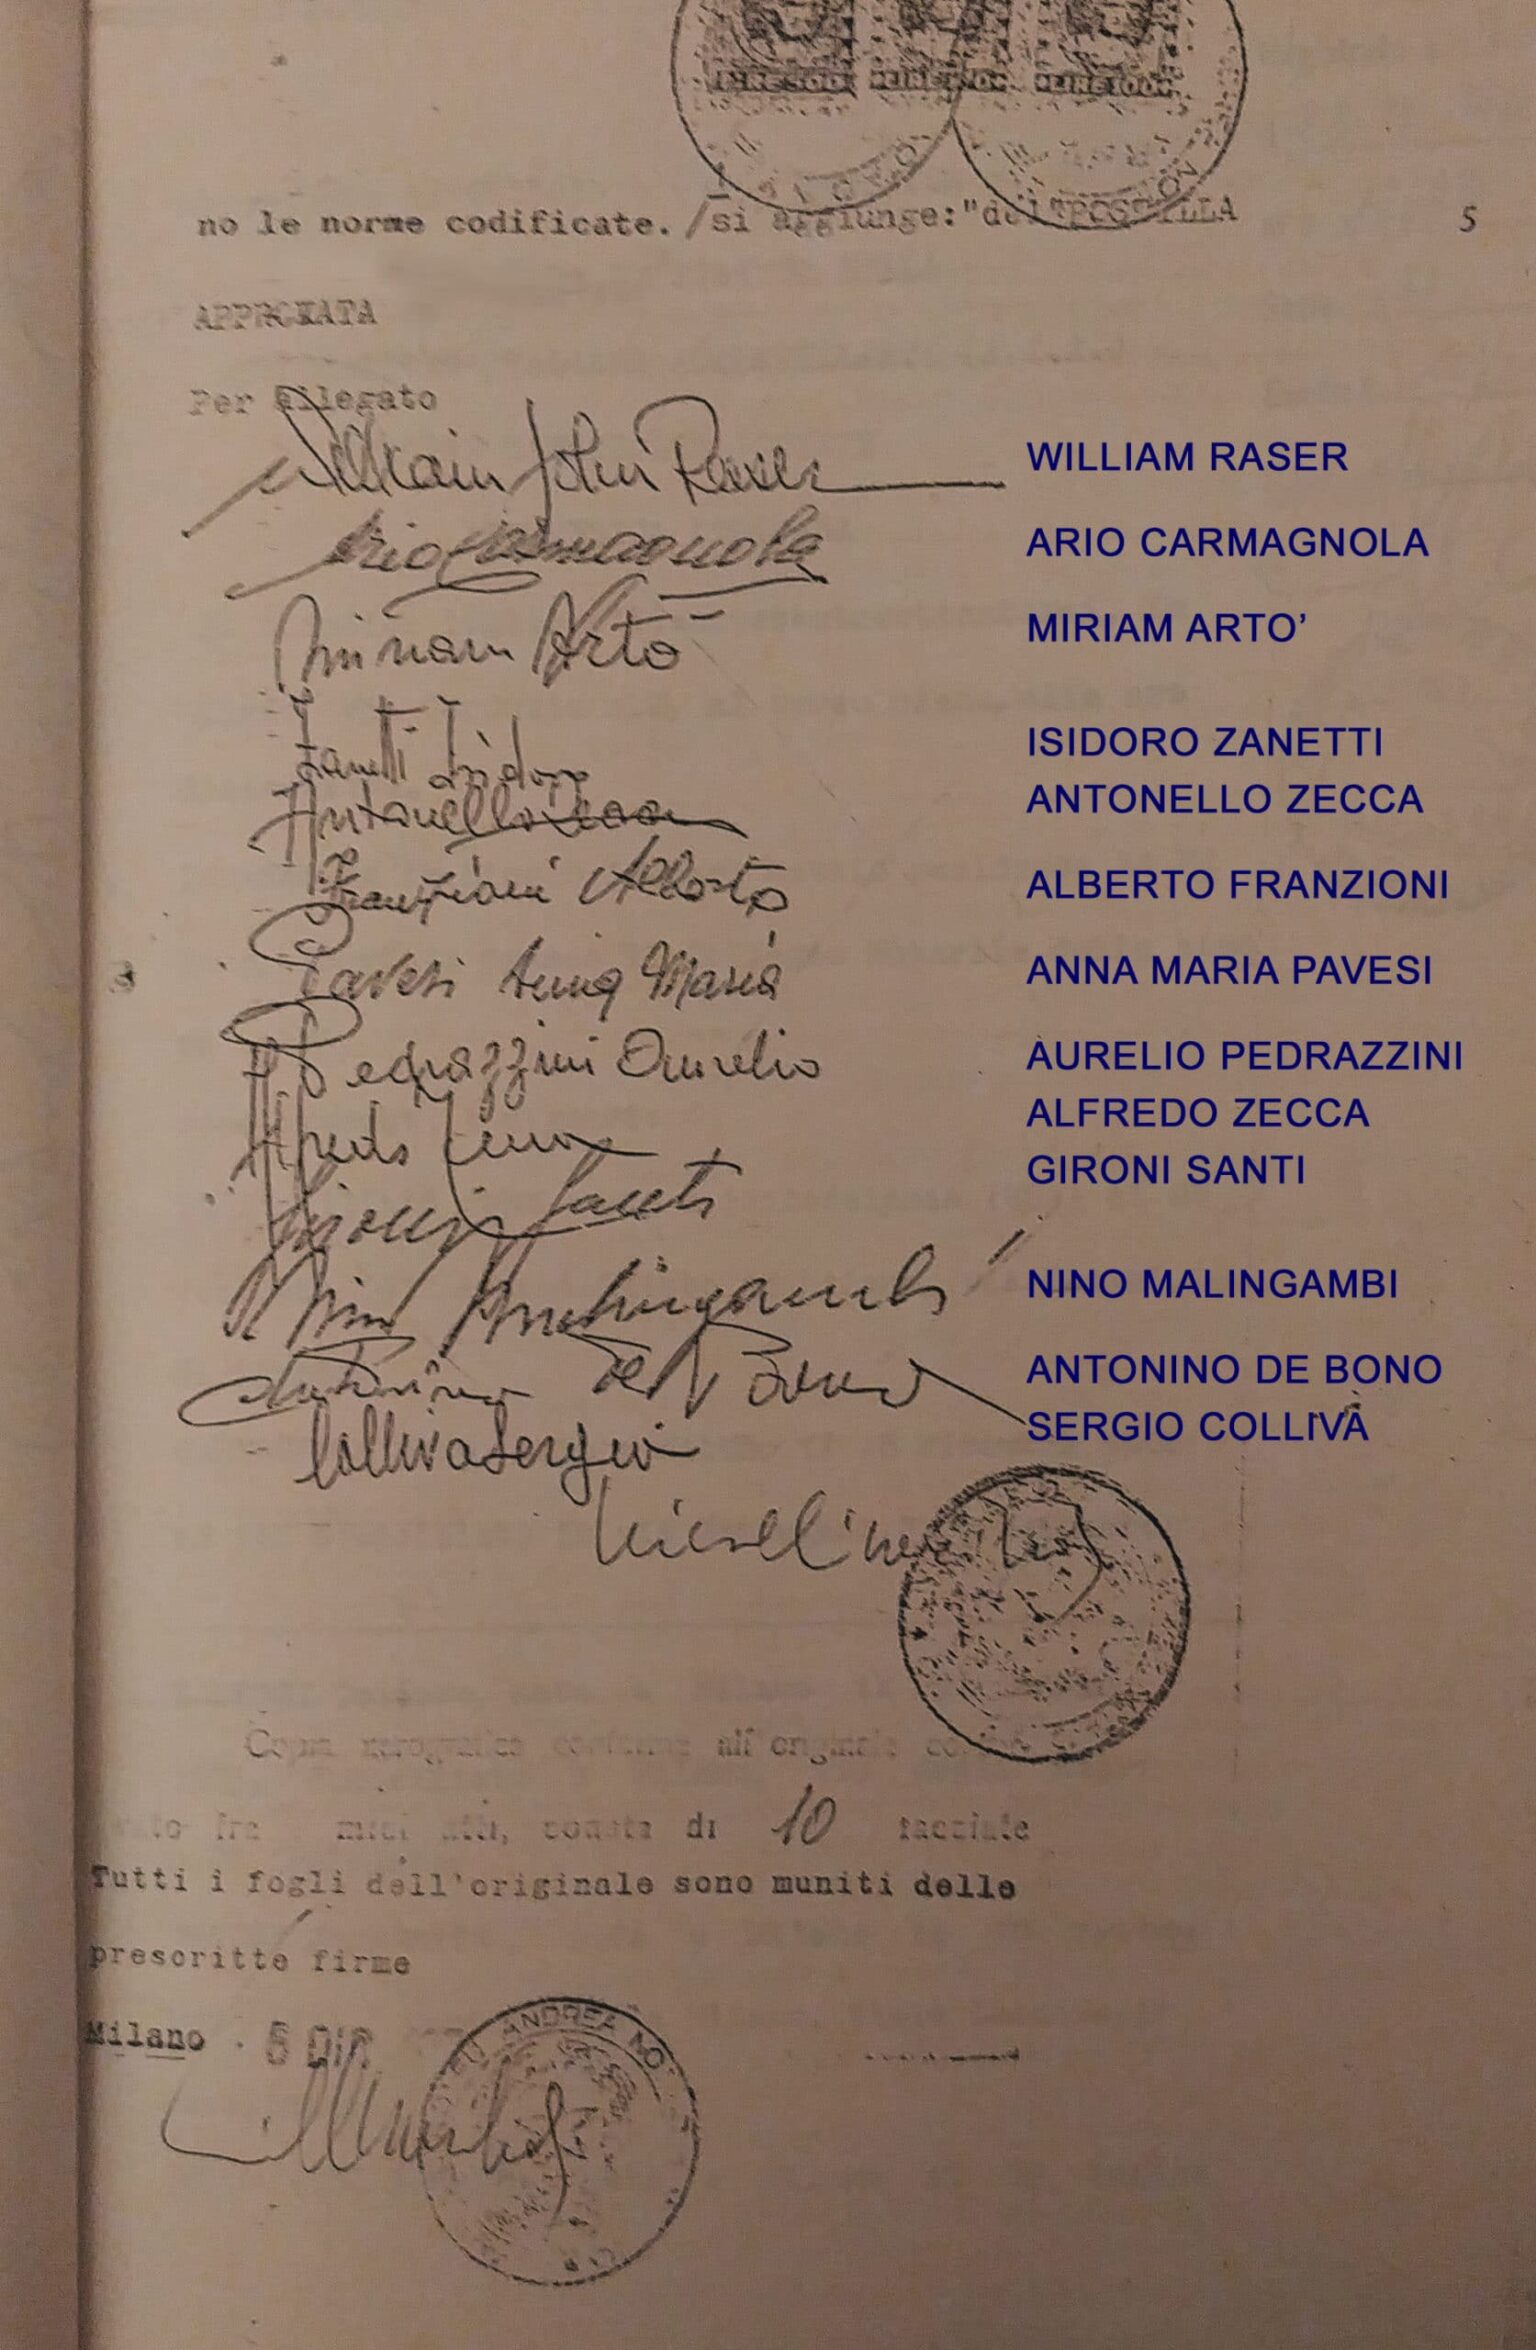 LIRE 100
no le norme codificate. /si aggiunge:"del "POSTILLA
5
APPROXATA
Per allegato
William John Raser WILLIAM RASER
Ario Carmagnola ARIO CARMAGNOLA
Miriam Artò MIRIAM ARTO’
Zanetti Isidoro ISIDORO ZANETTI
Antonello Zecca ANTONELLO ZECCA
Franzioni Alberto ALBERTO FRANZIONI
Pavesi Anna Maria ANNA MARIA PAVESI
Pedrazzini Aurelio AURELIO PEDRAZZINI
Alfredo Zecca ALFREDO ZECCA
Gironi Santi GIRONI SANTI
Nino Malingambi NINO MALINGAMBI
Antonino De Bono ANTONINO DE BONO
Colliva Sergio SERGIO COLLIVA
Copia xerografica conforme all'originale
fra miei atti, consta di 10 facciate
Tutti i fogli dell'originale sono muniti delle
prescritte firme
Milano
ANDREA NO